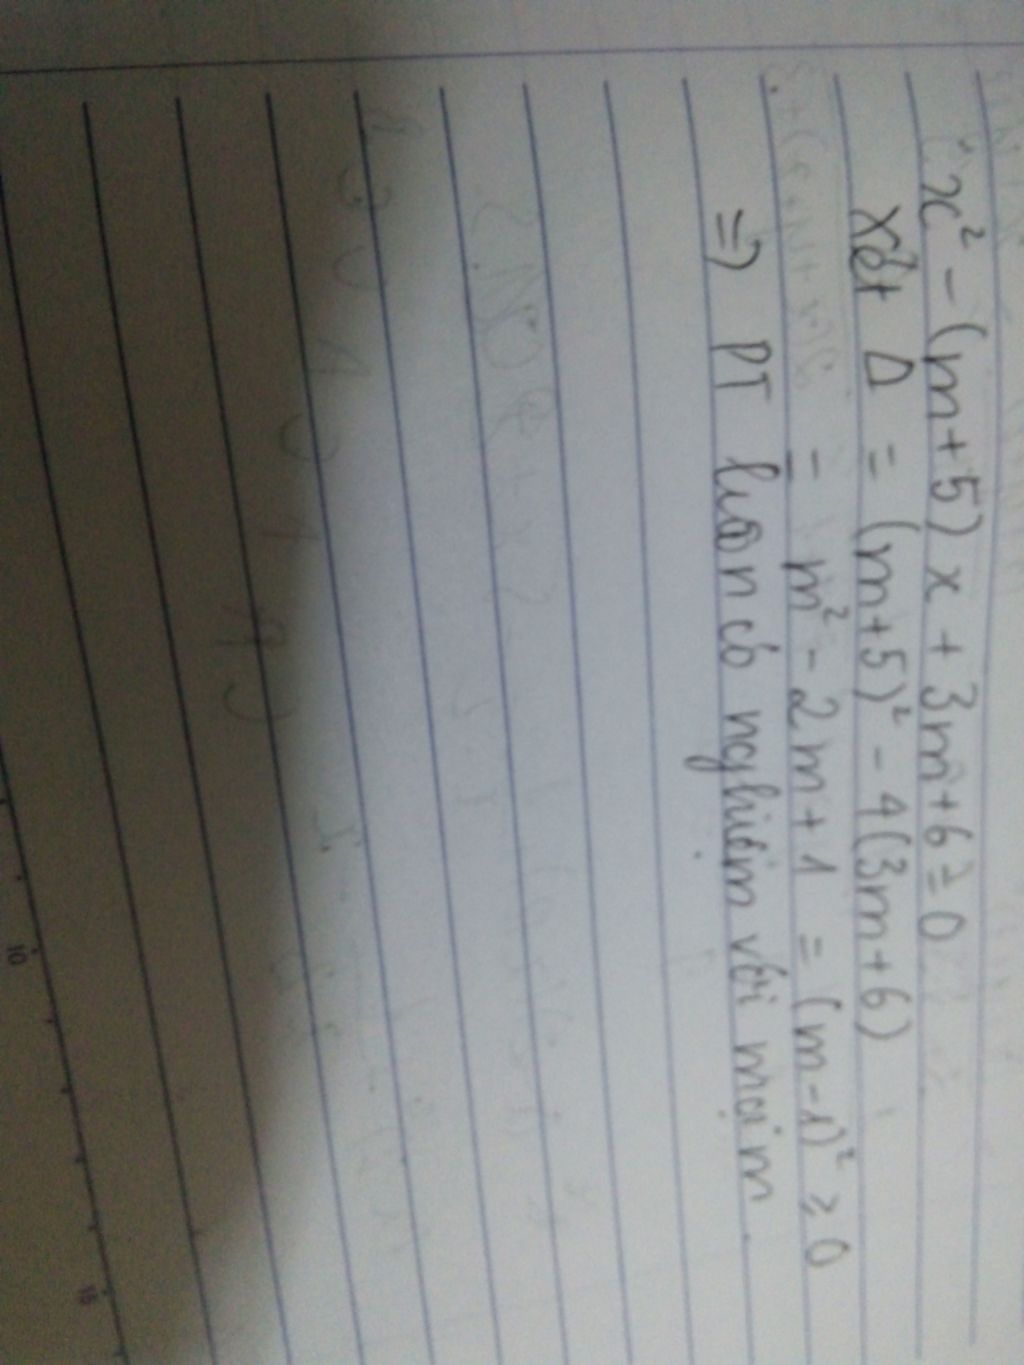 x² - (m+5)x + 3m+6 = 0
Xét Δ = (m+5)² - 4(3m+6)
= m² - 2m + 1 = (m-1)² ≥ 0
=> PT luôn có nghiệm với mọi m
10
15